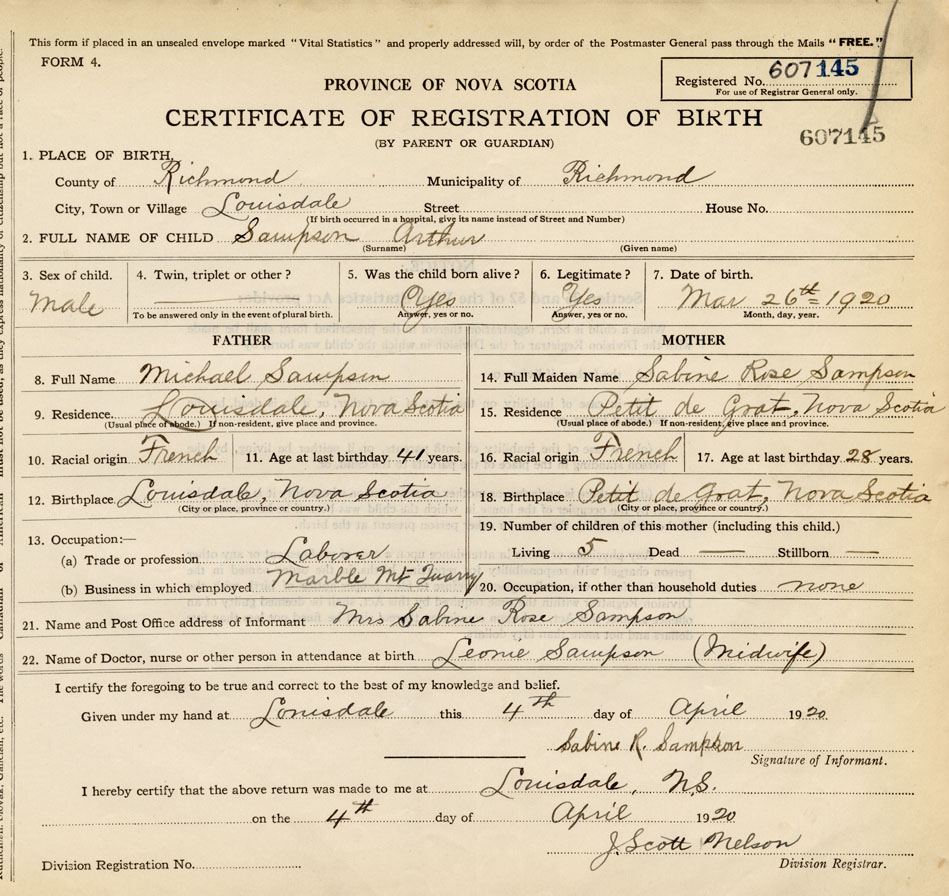 This form if placed in an unsealed envelope marked "Vital Statistics" and properly addressed will, by order of the Postmaster General pass through the Mails "FREE."
FORM 4.
Registered No. 607145
For use of Registrar General only.
PROVINCE OF NOVA SCOTIA
CERTIFICATE OF REGISTRATION OF BIRTH
607145
(BY PARENT OR GUARDIAN)
1. PLACE OF BIRTH,
County of Richmond Municipality of Richmond
City, Town or Village Louisdale Street House No.
(If birth occurred in a hospital, give its name instead of Street and Number)
2. FULL NAME OF CHILD Sampson Arthur
(Surname) (Given name)
3. Sex of child. 4. Twin, triplet or other? 5. Was the child born alive? 6. Legitimate? 7. Date of birth.
Male Yes Yes Mar 26th 1920
To be answered only in the event of plural birth. Answer, yes or no. Answer, yes or no. Month, day, year.
FATHER MOTHER
8. Full Name Michael Sampson 14. Full Maiden Name Sabine Rose Sampson
9. Residence Louisdale, Nova Scotia 15. Residence Petit de Grat, Nova Scotia
(Usual place of abode.) If non-resident, give place and province. (Usual place of abode.) If non-resident, give place and province.
10. Racial origin French 11. Age at last birthday 41 years. 16. Racial origin French 17. Age at last birthday 28 years.
12. Birthplace Louisdale, Nova Scotia 18. Birthplace Petit de Grat, Nova Scotia
(City or place, province or country.) (City or place, province or country.)
13. Occupation:— 19. Number of children of this mother (including this child.)
(a) Trade or profession Laborer Living 5 Dead — Stillborn —
(b) Business in which employed Marble Mt Quarry 20. Occupation, if other than household duties none
21. Name and Post Office address of Informant Mrs Sabine Rose Sampson
22. Name of Doctor, nurse or other person in attendance at birth Leonie Sampson (Midwife)
I certify the foregoing to be true and correct to the best of my knowledge and belief.
Given under my hand at Louisdale this 4th day of April 1920
Sabine R. Sampson
Signature of Informant.
I hereby certify that the above return was made to me at Louisdale, N.S.
on the 4th day of April 1920
J. Scott Nelson
Division Registration No. Division Registrar.